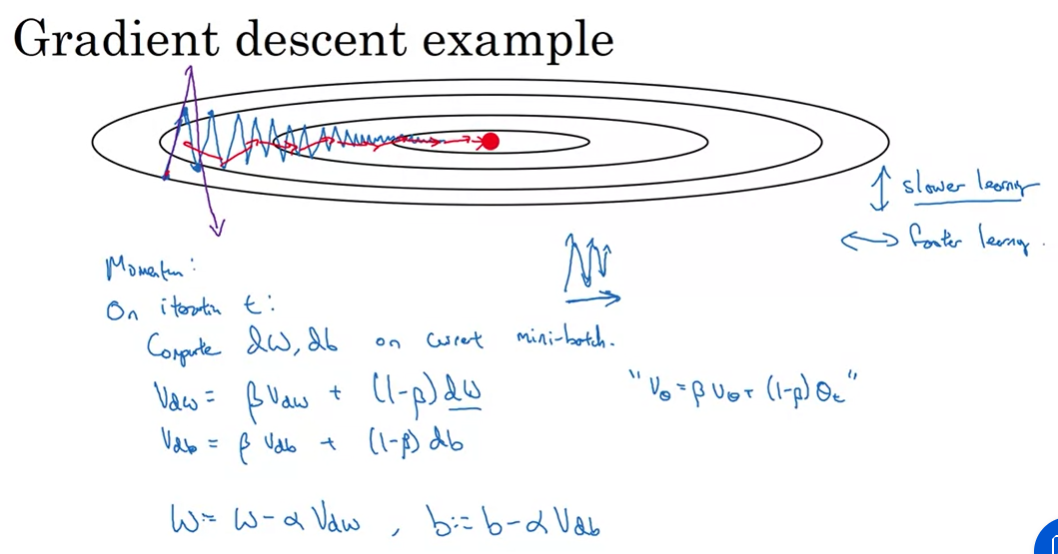 Gradient descent example
slower learning
faster learning.
Momentum:
On iteration t:
Compute dW, db on current mini-batch.
Vdw = βVdw + (1-β)dW
"Vθ = βVθ + (1-β)θt"
Vdb = βVdb + (1-β)db
W := W - αVdw, b := b - αVdb